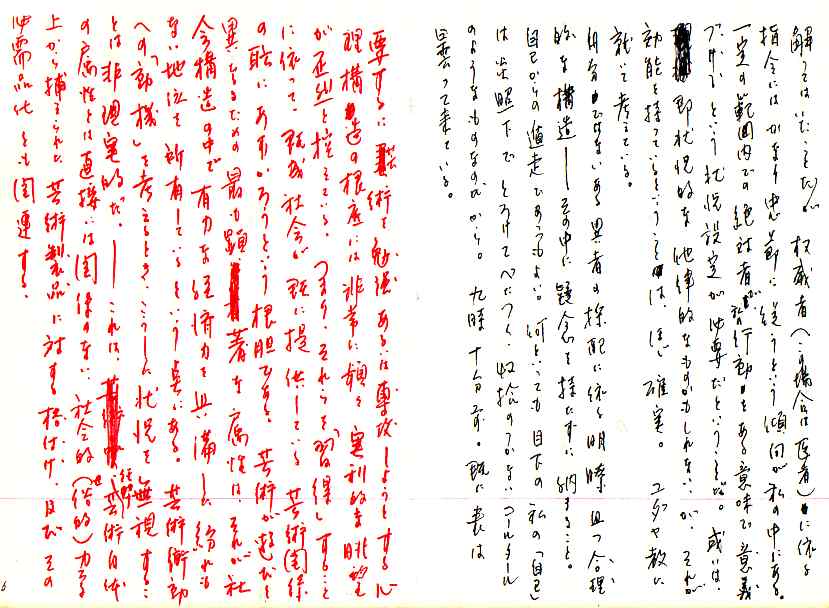 解ってはいたことだが 権威者（この場合は医者）に依る
指令にはかなり忠節に従うという傾向が私の中にある。
一定の範囲内での絶対者が私の行動をある意味で意義
づける という状況設定が必要だということだ。或いは、
即状況的な 他律的なものかもしれないが、それが
効能を持っているということは、ほぼ確実。 ユダヤ教に
就いて考えている。
自分ではないある異者の采配に依る明晰 且つ合理
的な構造──その中に疑念を持たずに納まること。
自己からの遁走であってもよい。何といっても目下の私の「自己」
は炎照下で とろけてべたつく、収拾のつかないコールタール
のようなものなのだから。 九時十分前。既に表は
曇って来ている。
要するに芸術を勉強あるいは専攻しようとする心
理構造の根底には非常に 実利的な眺望
が 控えている。 つまり、それらを「習得」すること
に依って、既成社会が既に提供している芸術関係
の にあずかろうという根胆である。 芸術が と
異なるための 最も顕著な属性は、それが社
会構造の中で 有力な経済力を 具備した 紛れも
ない地位を所有しているという点にある。 芸術衝動
への「動機」を考えるとき、こうした状況を無視する…
とは非現実的だ。── これは、 芸術自体
の属性とは直接には関係のない、社会的（俗世的）力
上から捕えられた 芸術製品に対する格付け、及びその
必需品化とも関連する。
6